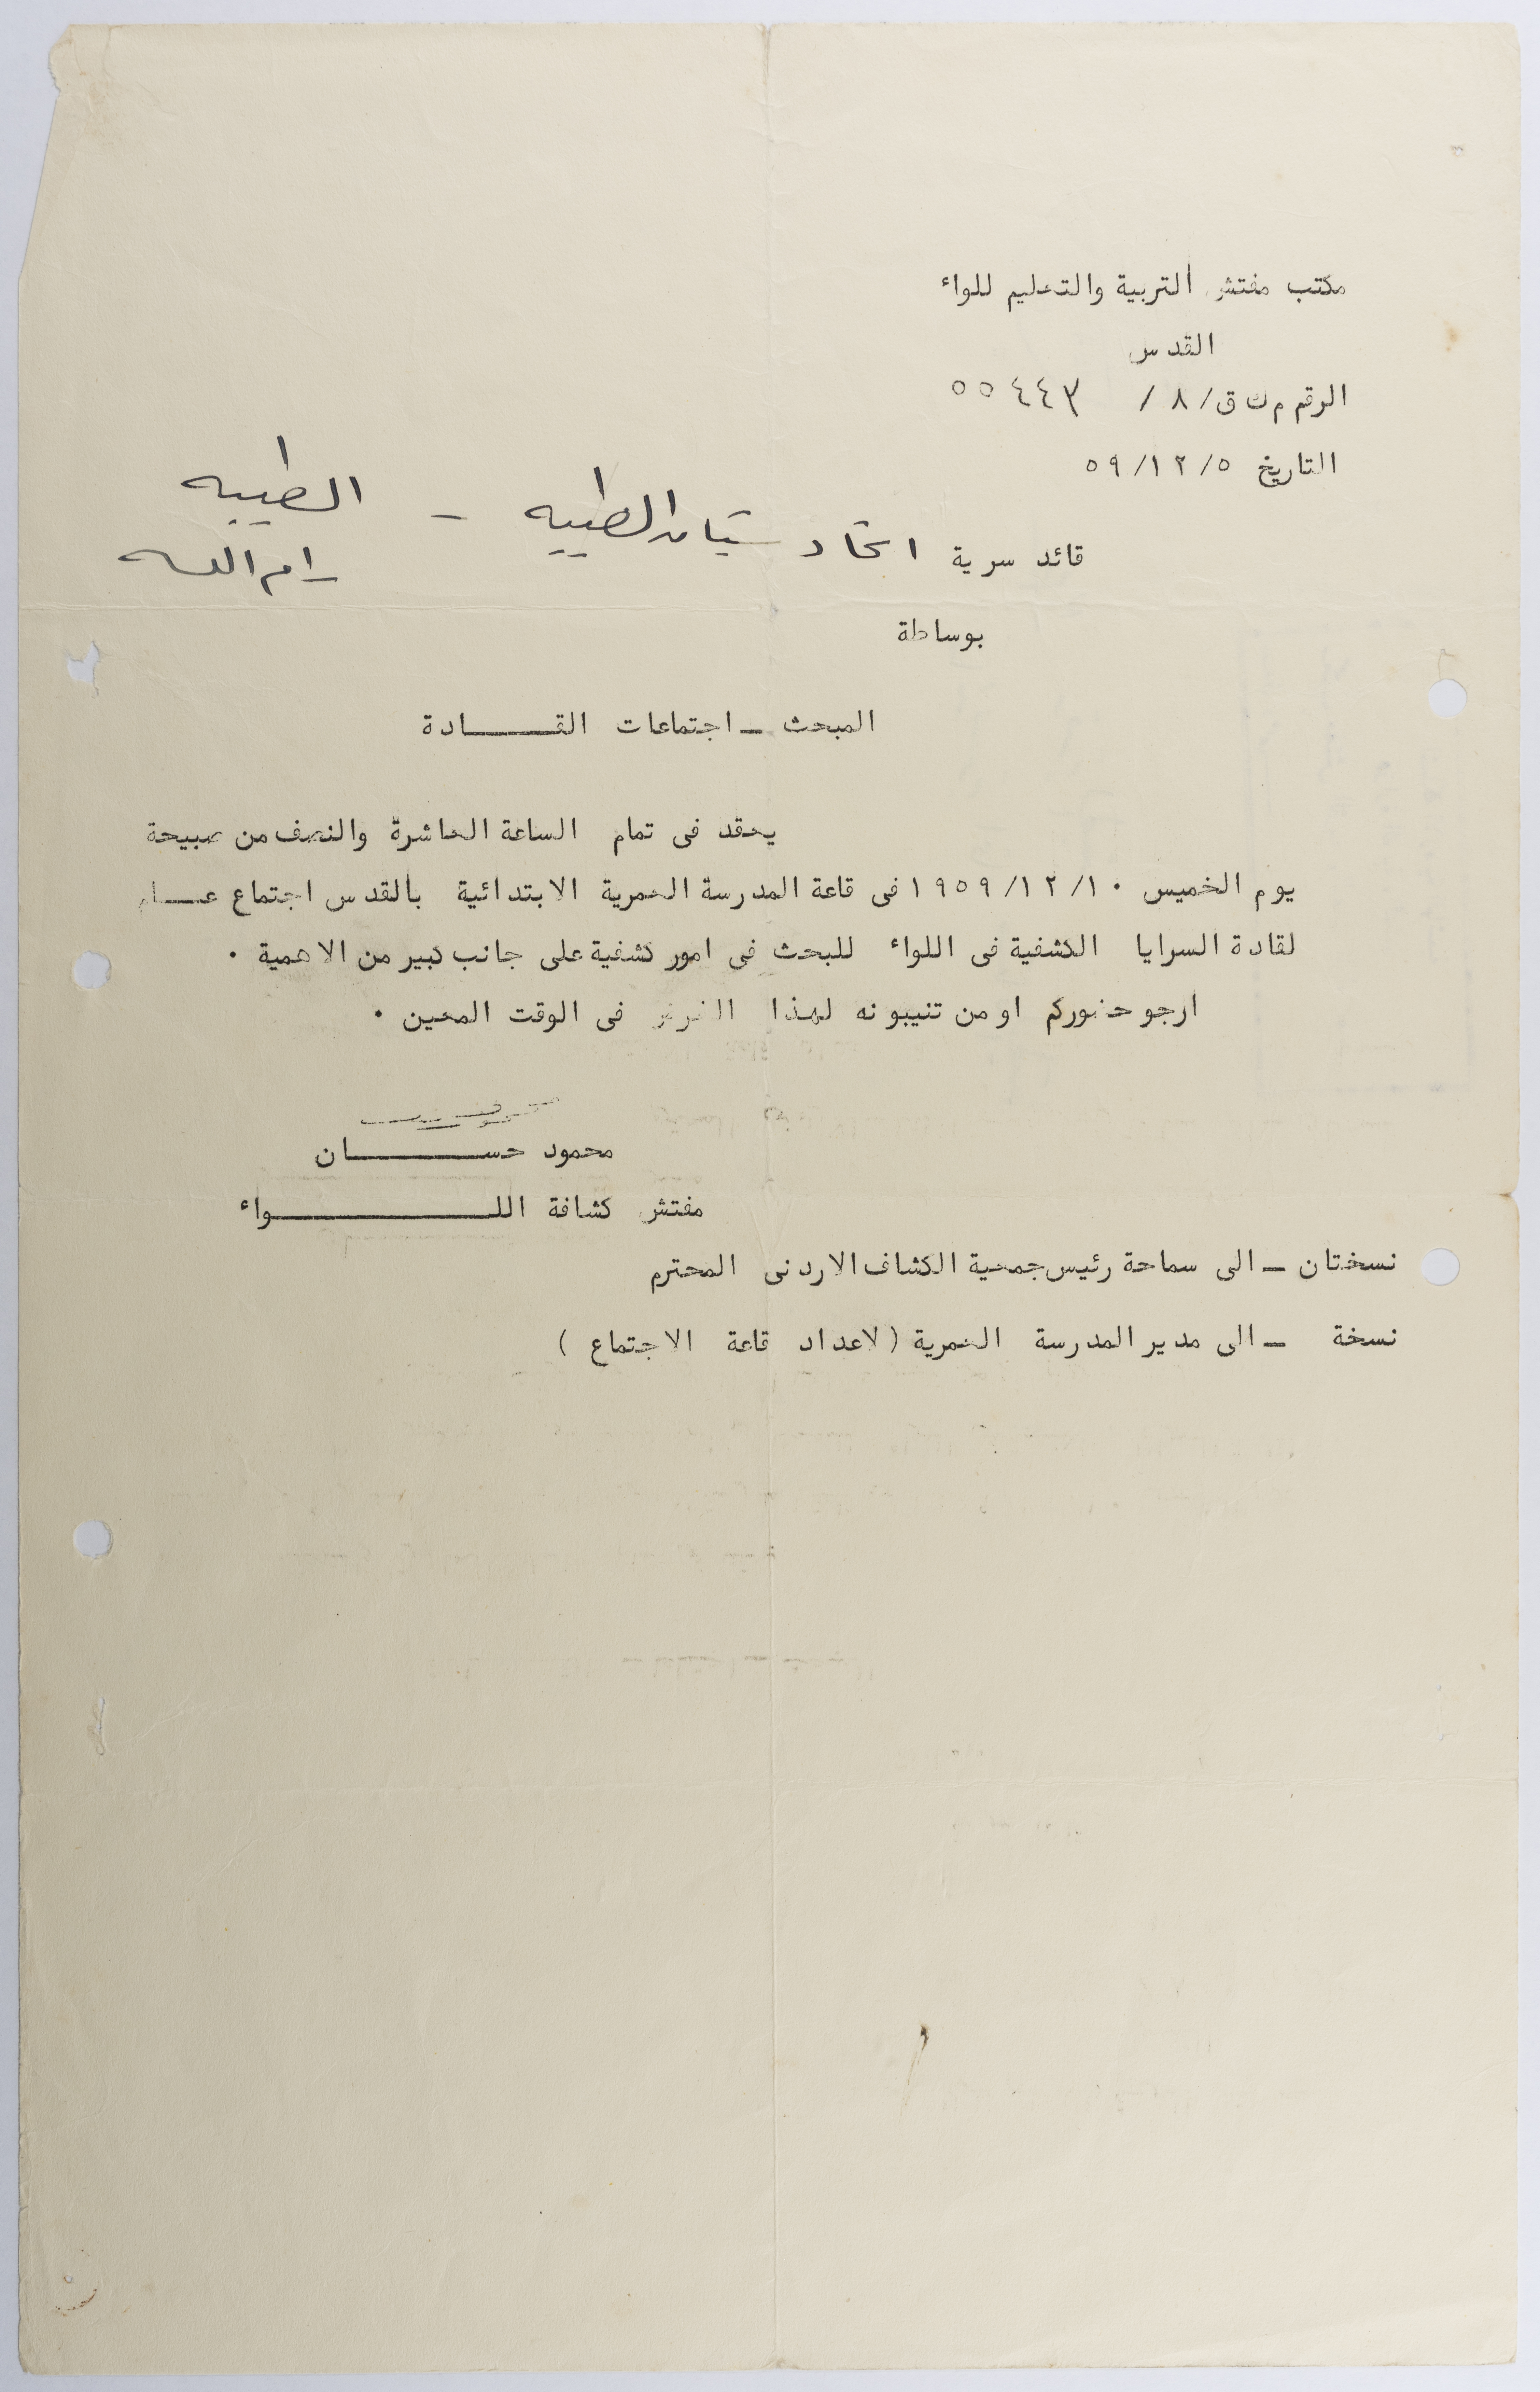 مكتب مفتش التربية والتعليم للواء
القدس
الرقم م ك ق/٨/ ٥٥٤٤٣
التاريخ ٥٩/١٢/٥
الطيبه
قائد سرية اتحاد شبان الطيبه -
رام الله
بوساطة
المبحث ـ اجتماعات القـــــادة
يعقد فى تمام الساعة العاشرة والنصف من صبيحة
يوم الخميس ١٩٥٩/١٢/١٠ فى قاعة المدرسة العمرية الابتدائية بالقدس اجتماع عـــام
لقادة السرايا الكشفية فى اللواء للبحث فى امور كشفية على جانب كبير من الاهمية ٠
ارجو حضوركم او من تنيبونه لهذا الغرض فى الوقت المعين ٠
محمود حســـــــان
مفتش كشافة اللـــــــــواء
نسختان ـ الى سماحة رئيس جمعية الكشاف الاردنى المحترم
نسخة ـ الى مدير المدرسة العمرية (لاعداد قاعة الاجتماع )